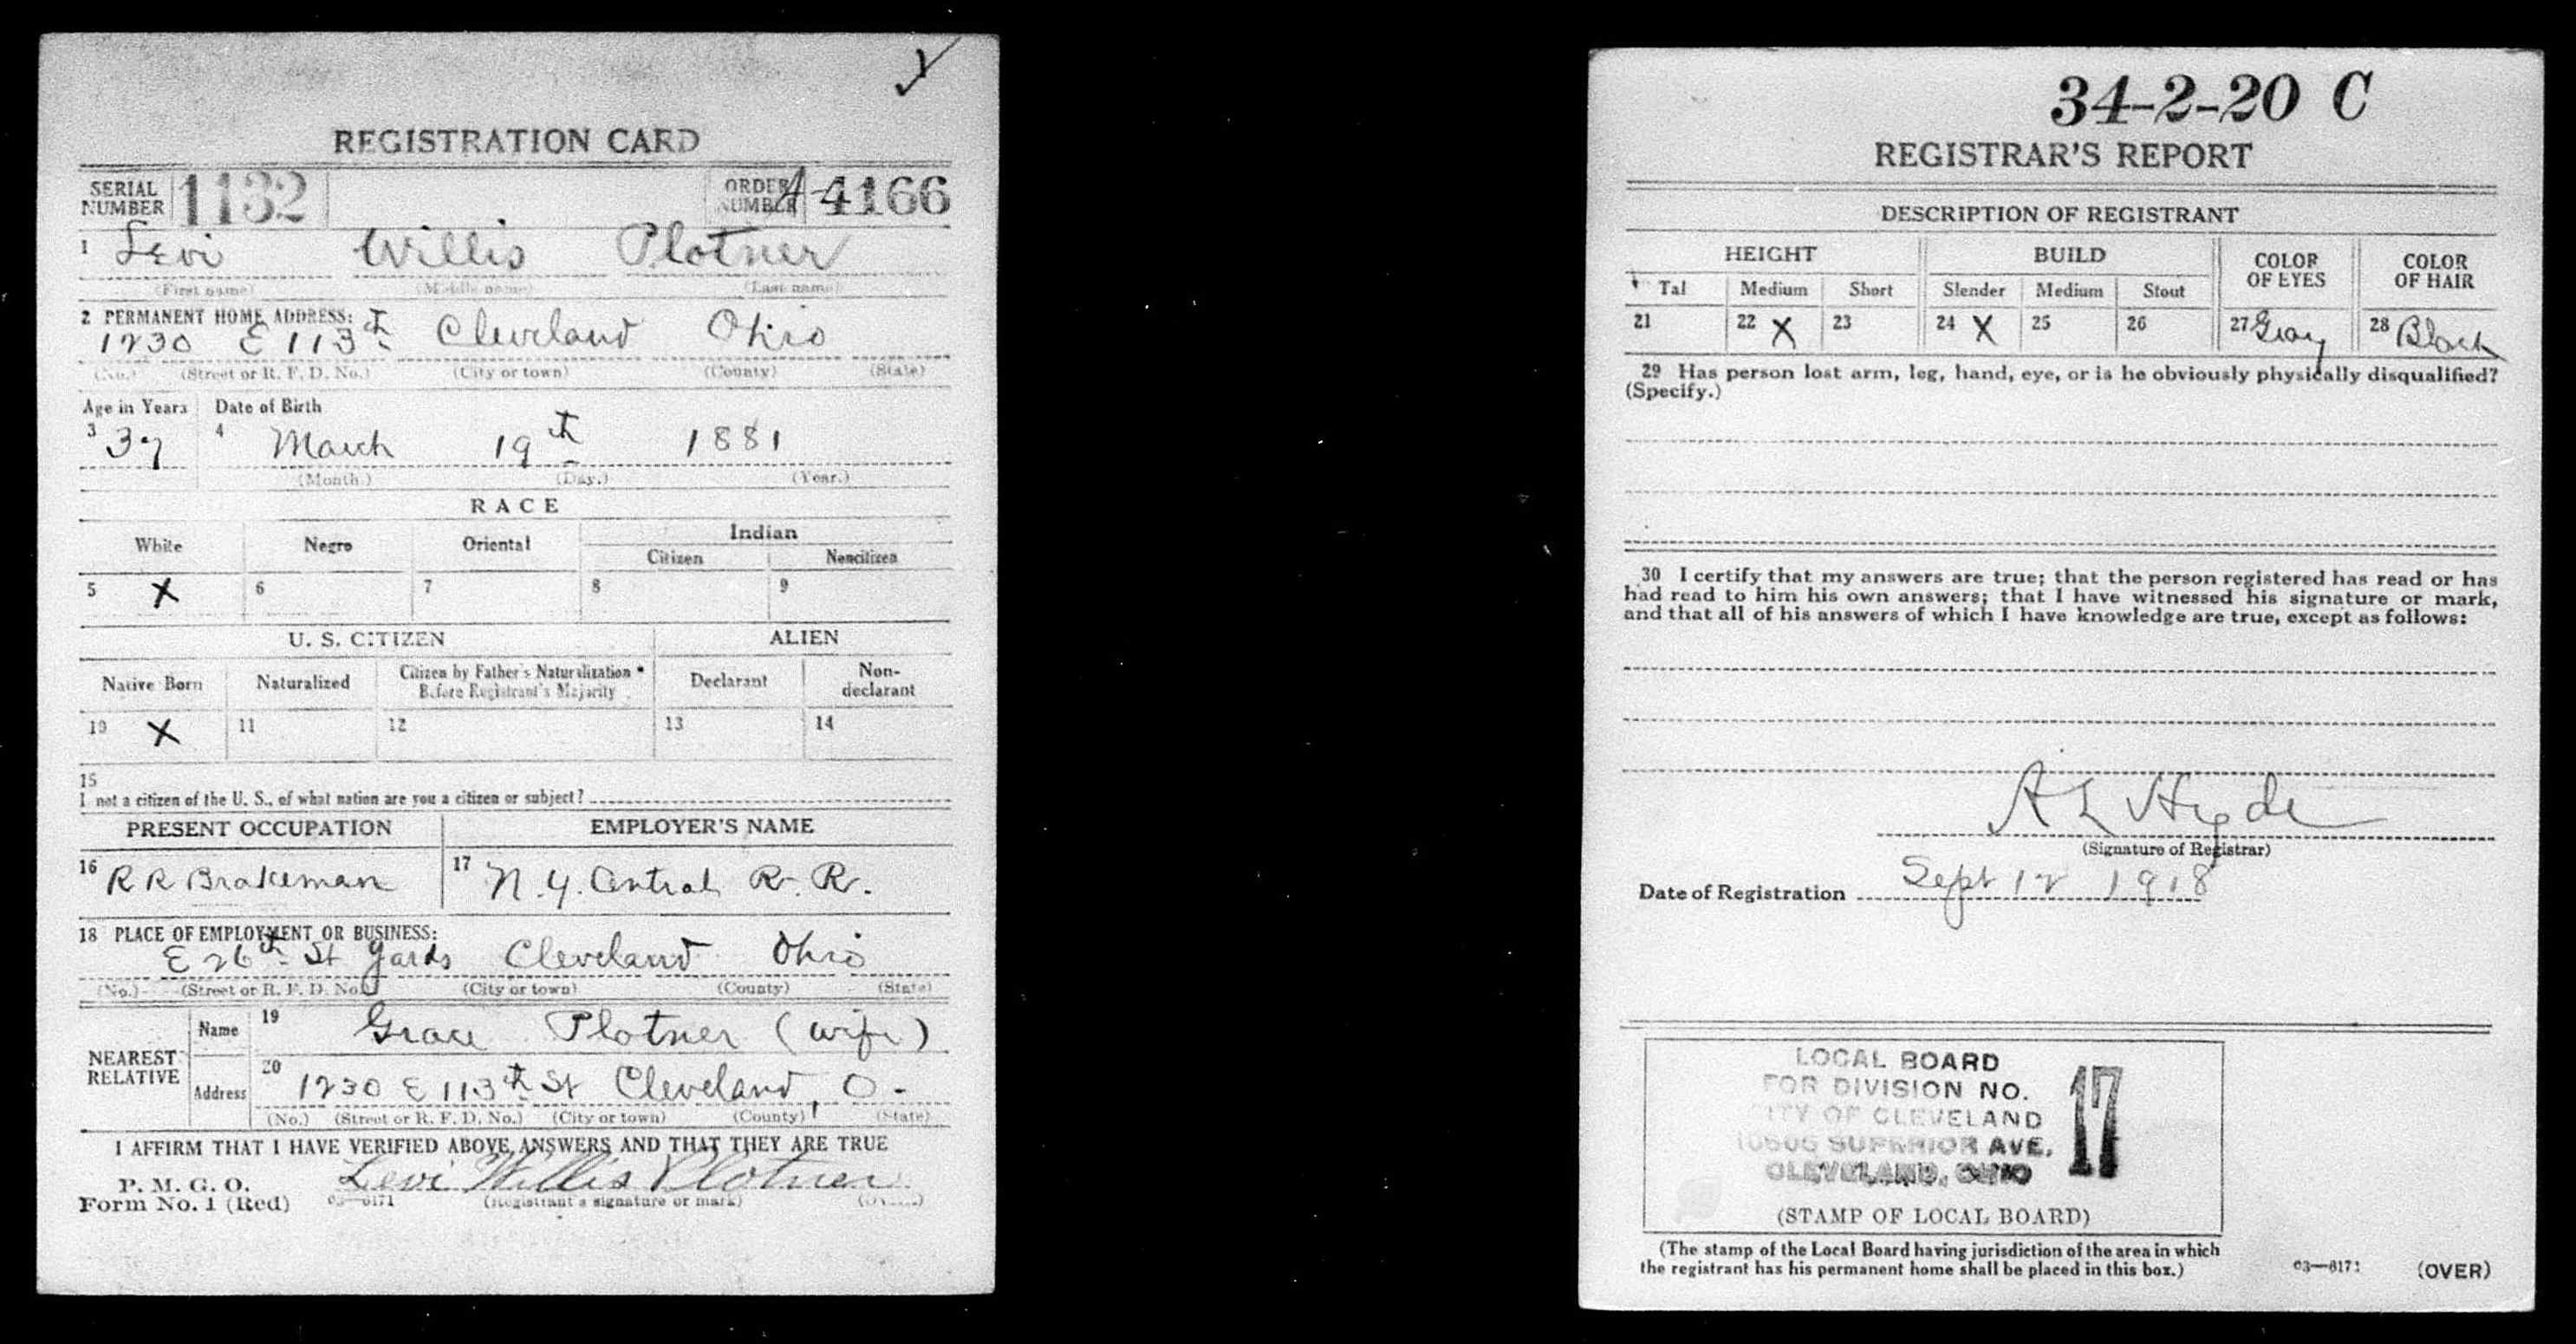 REGISTRATION CARD
SERIAL NUMBER 1132 ORDER NUMBER A-4166
1 Levi Willis Plotner
(First name) (Middle name) (Last name)
2 PERMANENT HOME ADDRESS:
1230 E 113th Cleveland Ohio
(No.) (Street or R. F. D. No.) (City or town) (County) (State)
Age in Years Date of Birth
3 37 4 March 19th 1881
(Month.) (Day.) (Year.)
RACE
White Negro Oriental Indian
Citizen Noncitizen
5 X 6 7 8 9
U. S. CITIZEN ALIEN
Native Born Naturalized Citizen by Father's Naturalization Before Registrant's Majority Declarant Non-declarant
10 X 11 12 13 14
15
I not a citizen of the U. S., of what nation are you a citizen or subject?
PRESENT OCCUPATION EMPLOYER'S NAME
16 R R Brakeman 17 N. Y. Central R. R.
18 PLACE OF EMPLOYMENT OR BUSINESS:
E 26th St Yards Cleveland Ohio
(No.) (Street or R. F. D. No.) (City or town) (County) (State)
NEAREST RELATIVE
Name 19 Grace Plotner (wife)
Address 20 1230 E 113th St Cleveland, O-
(No.) (Street or R. F. D. No.) (City or town) (County) (State)
I AFFIRM THAT I HAVE VERIFIED ABOVE ANSWERS AND THAT THEY ARE TRUE
P. M. G. O.
Form No. 1 (Red) 03—6171 Levi Willis Plotner
(Registrant's signature or mark)
34-2-20 C
REGISTRAR'S REPORT
DESCRIPTION OF REGISTRANT
HEIGHT BUILD COLOR OF EYES COLOR OF HAIR
Tal Medium Short Slender Medium Stout
21 22 X 23 24 X 25 26 27 Gray 28 Black
29 Has person lost arm, leg, hand, eye, or is he obviously physically disqualified?
(Specify.)
30 I certify that my answers are true; that the person registered has read or has
had read to him his own answers; that I have witnessed his signature or mark,
and that all of his answers of which I have knowledge are true, except as follows:
A L Hyde
(Signature of Registrar)
Date of Registration Sept 12 1918
LOCAL BOARD
FOR DIVISION NO. 17
CITY OF CLEVELAND
SUPERIOR AVE.
CLEVELAND, OHIO
(STAMP OF LOCAL BOARD)
(The stamp of the Local Board having jurisdiction of the area in which
the registrant has his permanent home shall be placed in this box.)
03—6171 (OVER)